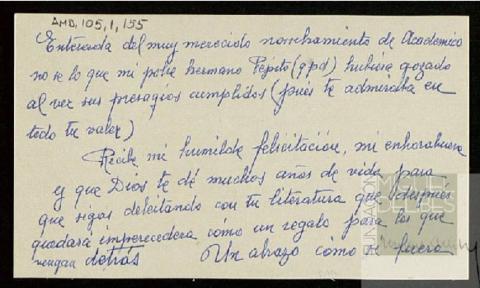 AMD, 105, 1, 155
Enterada del muy merecido nombramiento de Académico
no se lo que mi pobre hermano Pepito (q.p.d) hubiera gozado
al ver sus presagios cumplidos (pués te admiraba en
todo tu valer)
Recibe mi humilde felicitación, mi enhorabuena
y que Dios te dé muchos años de vida para
que sigas deleitando con tu literatura que después
quedará imperecedera como un regalo para los que
vengan detrás Un abrazo cómo si fuera
FUNDACIÓN
MIGUEL
DELIBES